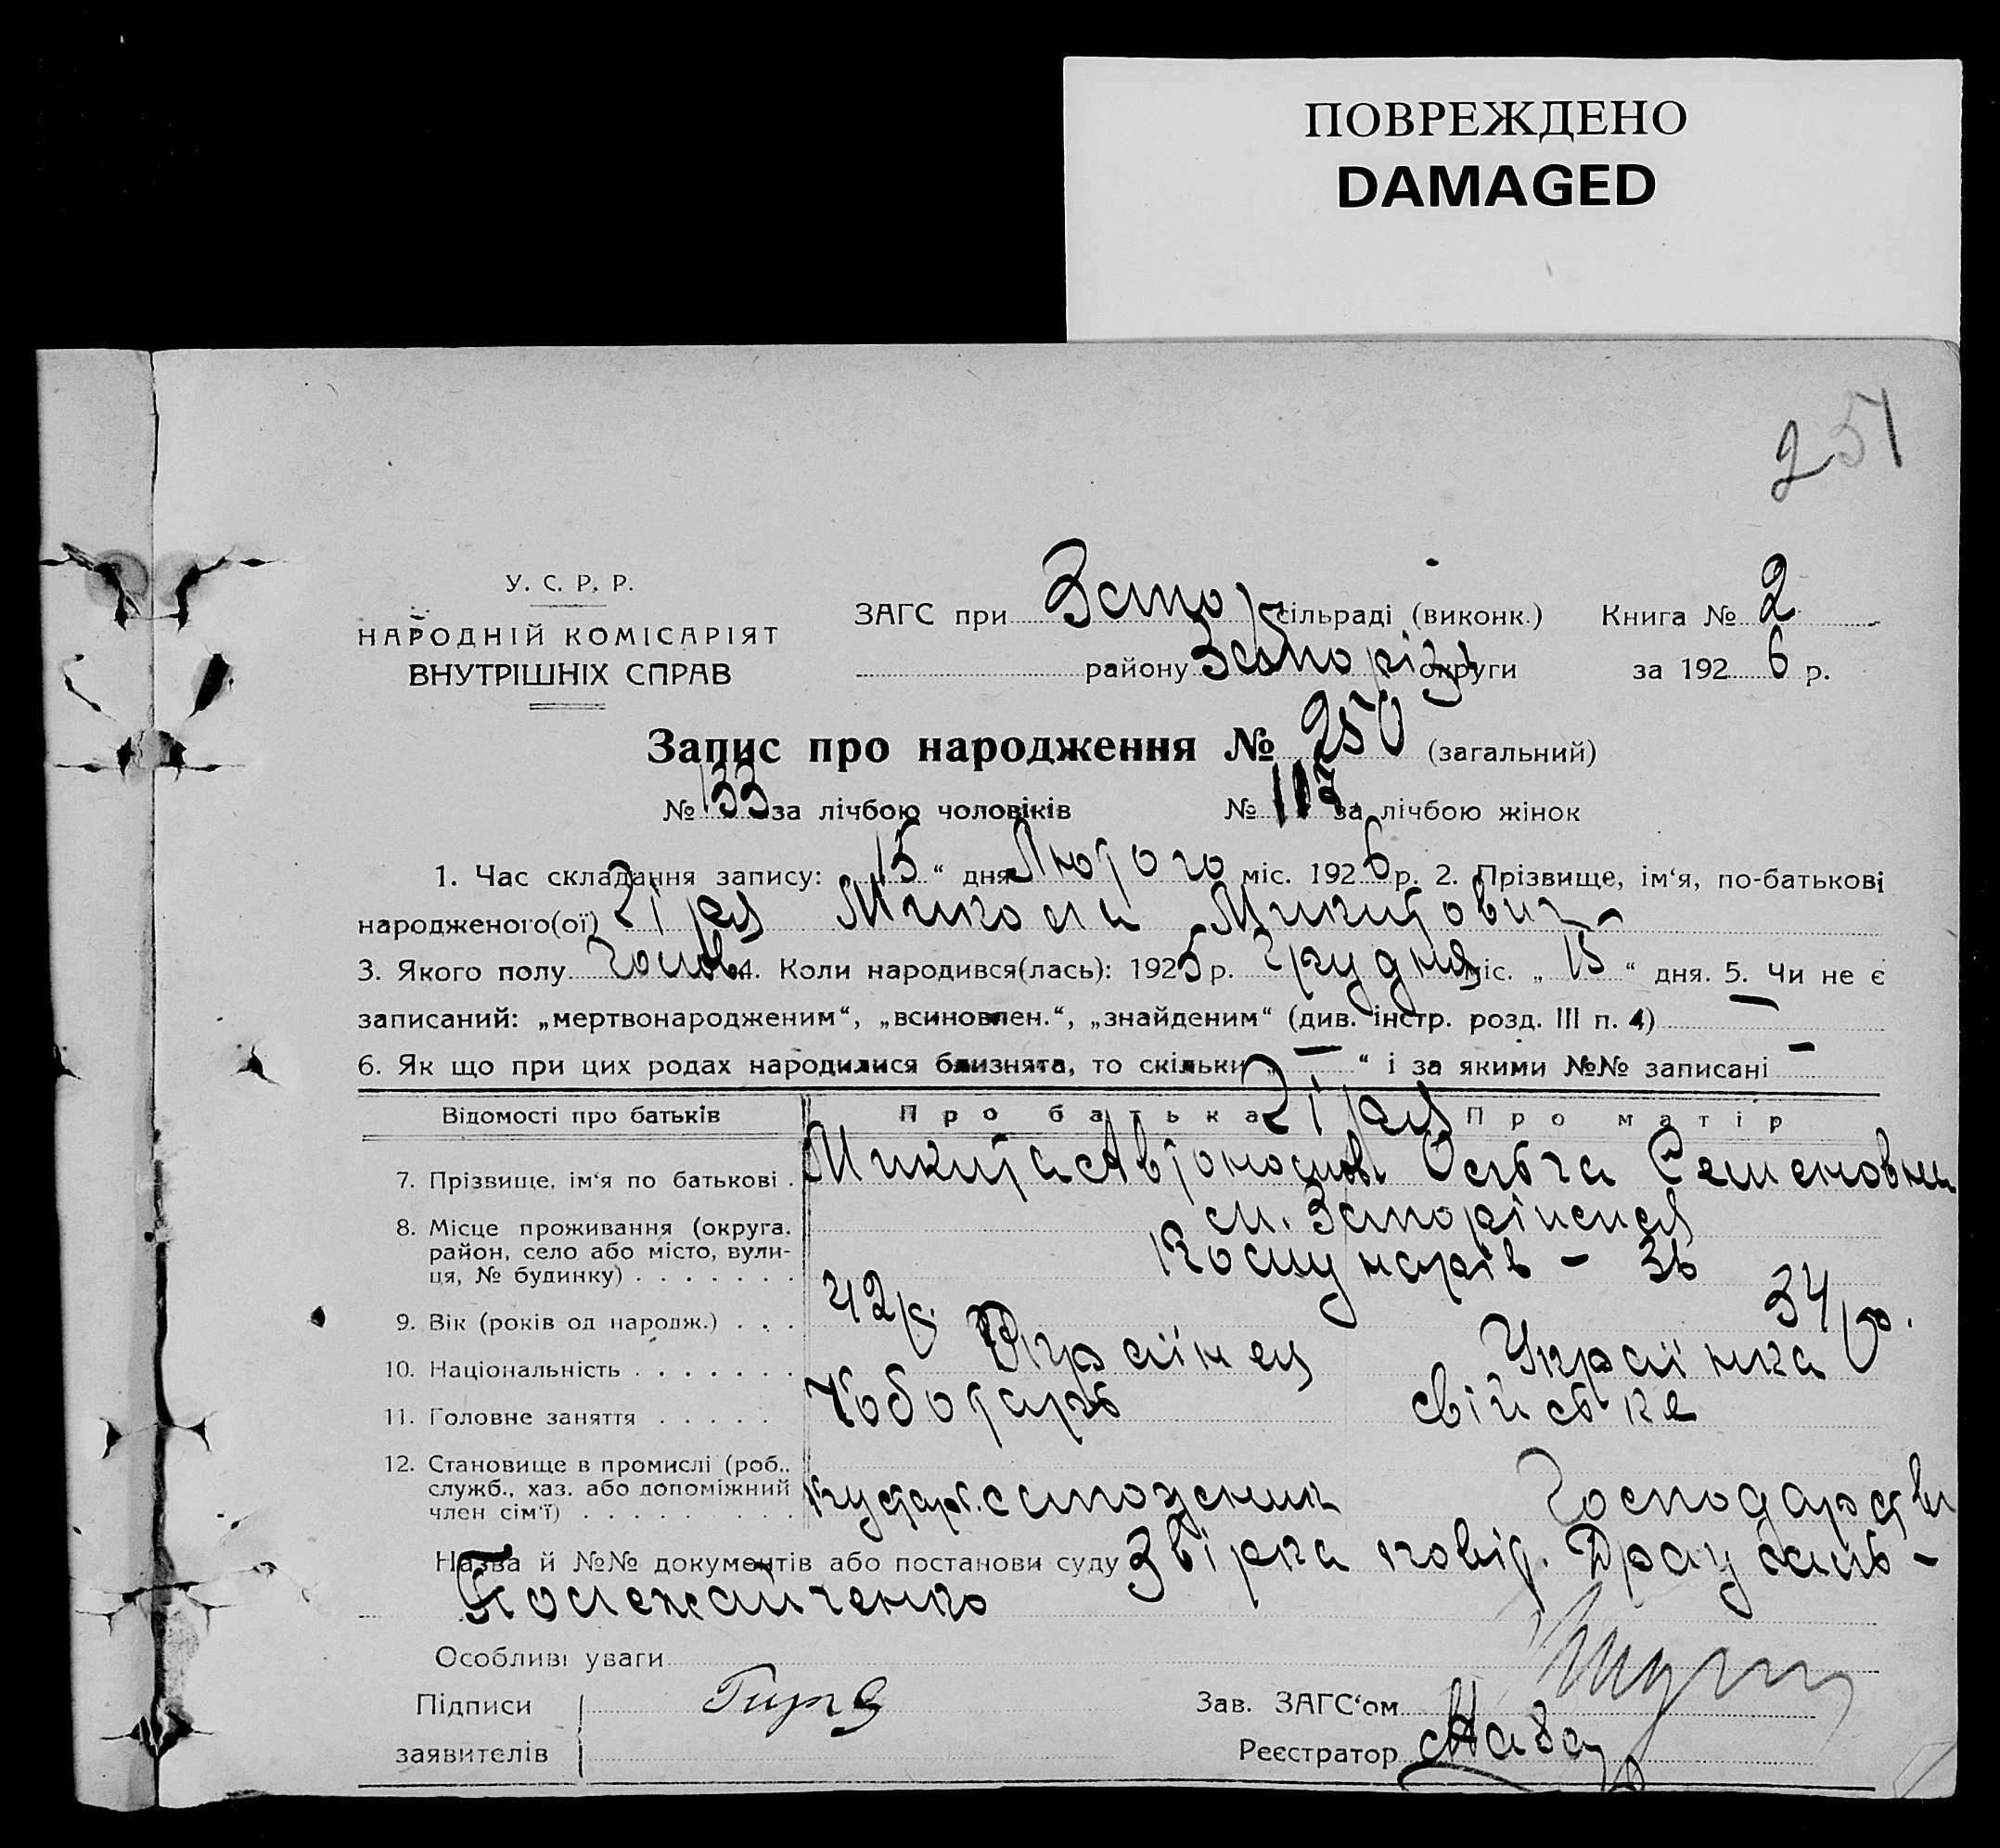 ПОВРЕЖДЕНО
DAMAGED
251
У. С. Р. Р.
НАРОДНІЙ КОМІСАРІЯТ
ВНУТРІШНІХ СПРАВ
ЗАГС при Запор сільраді (виконк.) Книга № 2
району Запоріз округи за 1926 р.
Запис про народження № 250 (загальний)
№ 133 за лічбою чоловіків № 117 за лічбою жінок
1. Час складання запису: 15 “ дня Лютого міс. 1926 р. 2. Прізвище, ім‘я, по-батькові
народженого(ої) Гіря Микола Микитович
3. Якого полу чолов. 4. Коли народився(лась): 1925 р. Грудня міс. „ 15 “ дня. 5. Чи не є
записаний: „мертвонародженим“, „всиновлен.“, „знайденим“ (див. інстр. розд. III п. 4) —
6. Як що при цих родах народилися близнята, то скільки „ — “ і за якими №№ записані —
Відомості про батьків Про батька Гіря Про матір
7. Прізвище, ім‘я по батькові . Микита Автономов. Ольга Семеновна
8. Місце проживання (округа, м. Запоріжжя
район, село або місто, вули- Комунарів - 36
ця, № будинку) . . . . . . .
9. Вік (років од народж.) . . . 42 р. 34 р.
10. Національність . . . . . . . Українец Українка
11. Головне заняття . . . . . свійська
12. Становище в промислі (роб.,
служб., хаз. або допоміжний Господарств
член сім‘ї) . . . . . . . . .
Назва й №№ документів або постанови суду Звірка повід.
Полежайченко
Особливі уваги
Підписи Гиря Зав. ЗАГС‘ом
заявителів Реєстратор